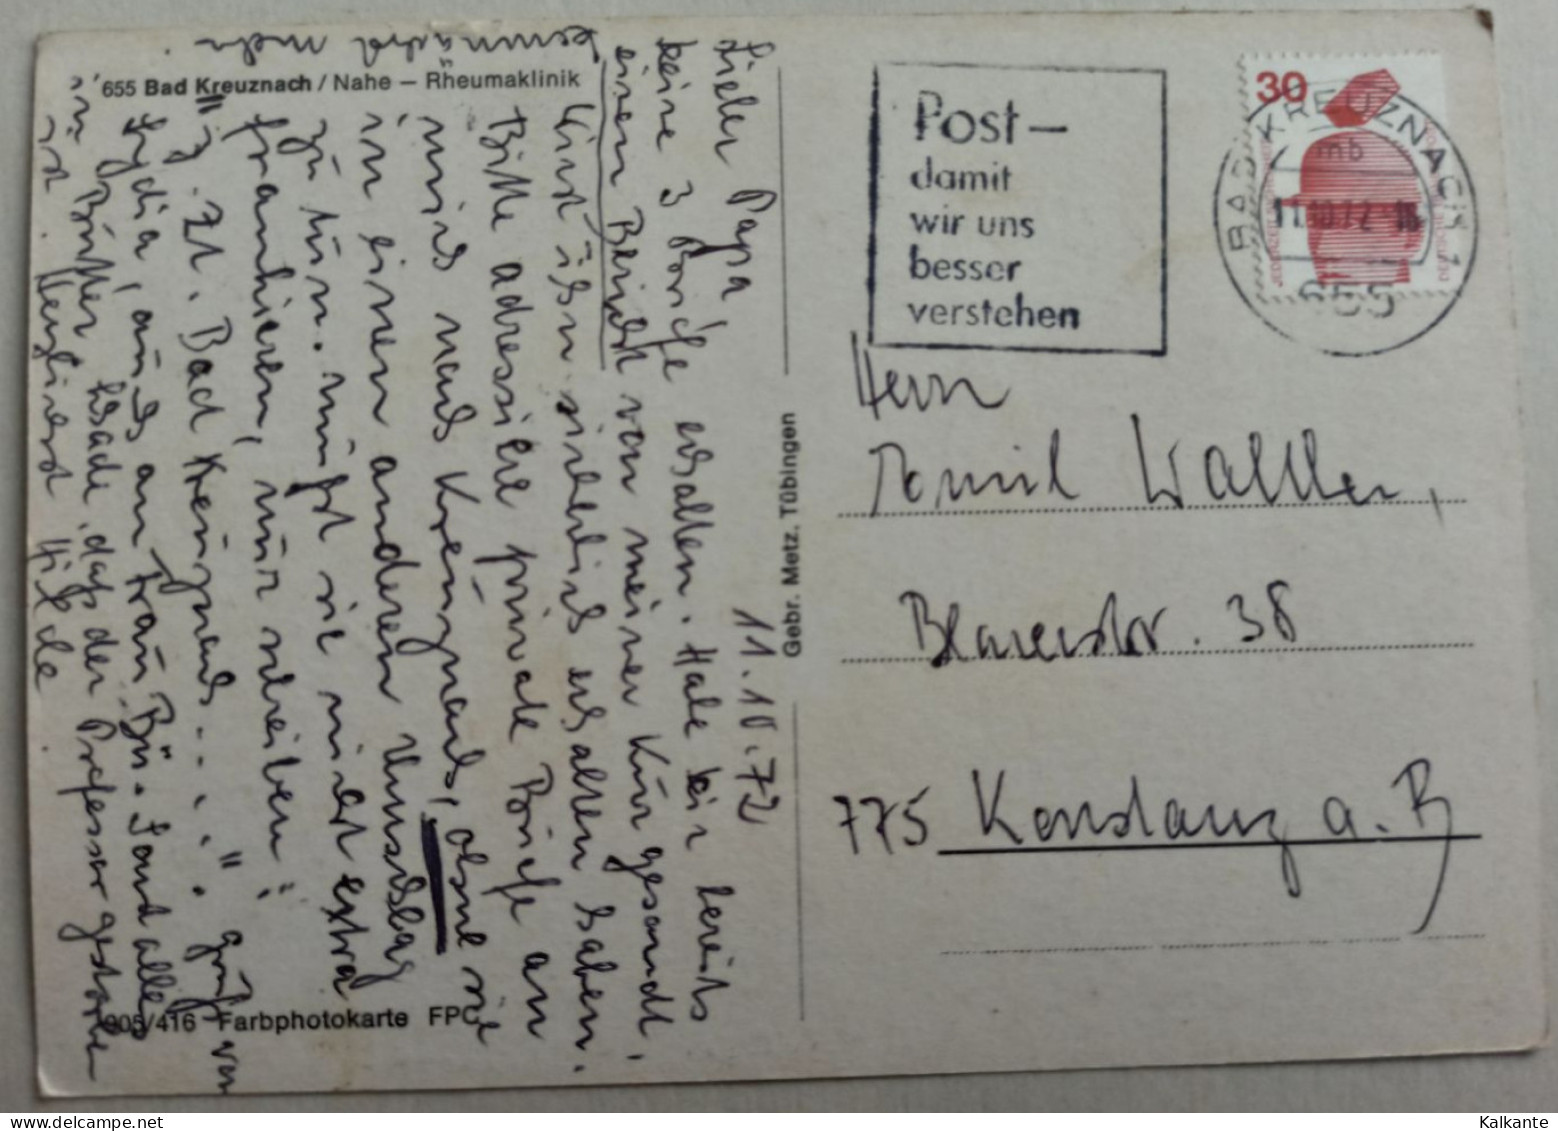 655 Bad Kreuznach / Nahe – Rheumaklinik
11.10.72
Lieber Papa
keine 3 Briefe erhalten. Habe bereits
einen Bericht von meiner Kur gesandt.
Wirst ihn sicherlich erhalten haben.
Bitte adressiere private Briefe an
mich nach Kreuznach, ohne sie
in einen anderen Umschlag
zu tun. mußt sie nicht extra
frankieren, nur schreiben:
"z. Zt. Bad Kreuznach.....".
Lydia, auch an Frau Bü. Samt allen
im Büro. Schade, daß der Professor gestorben
ist. Herzlichst Hilde
005/416 Farbphotokarte FPC
Gebr. Metz. Tübingen
Post –
damit
wir uns
besser
verstehen
30
BAD KREUZNACH 1
mb
11.10.72-16
655
Herrn
Walther,
38
775 Konstanz a. R
Kalkante